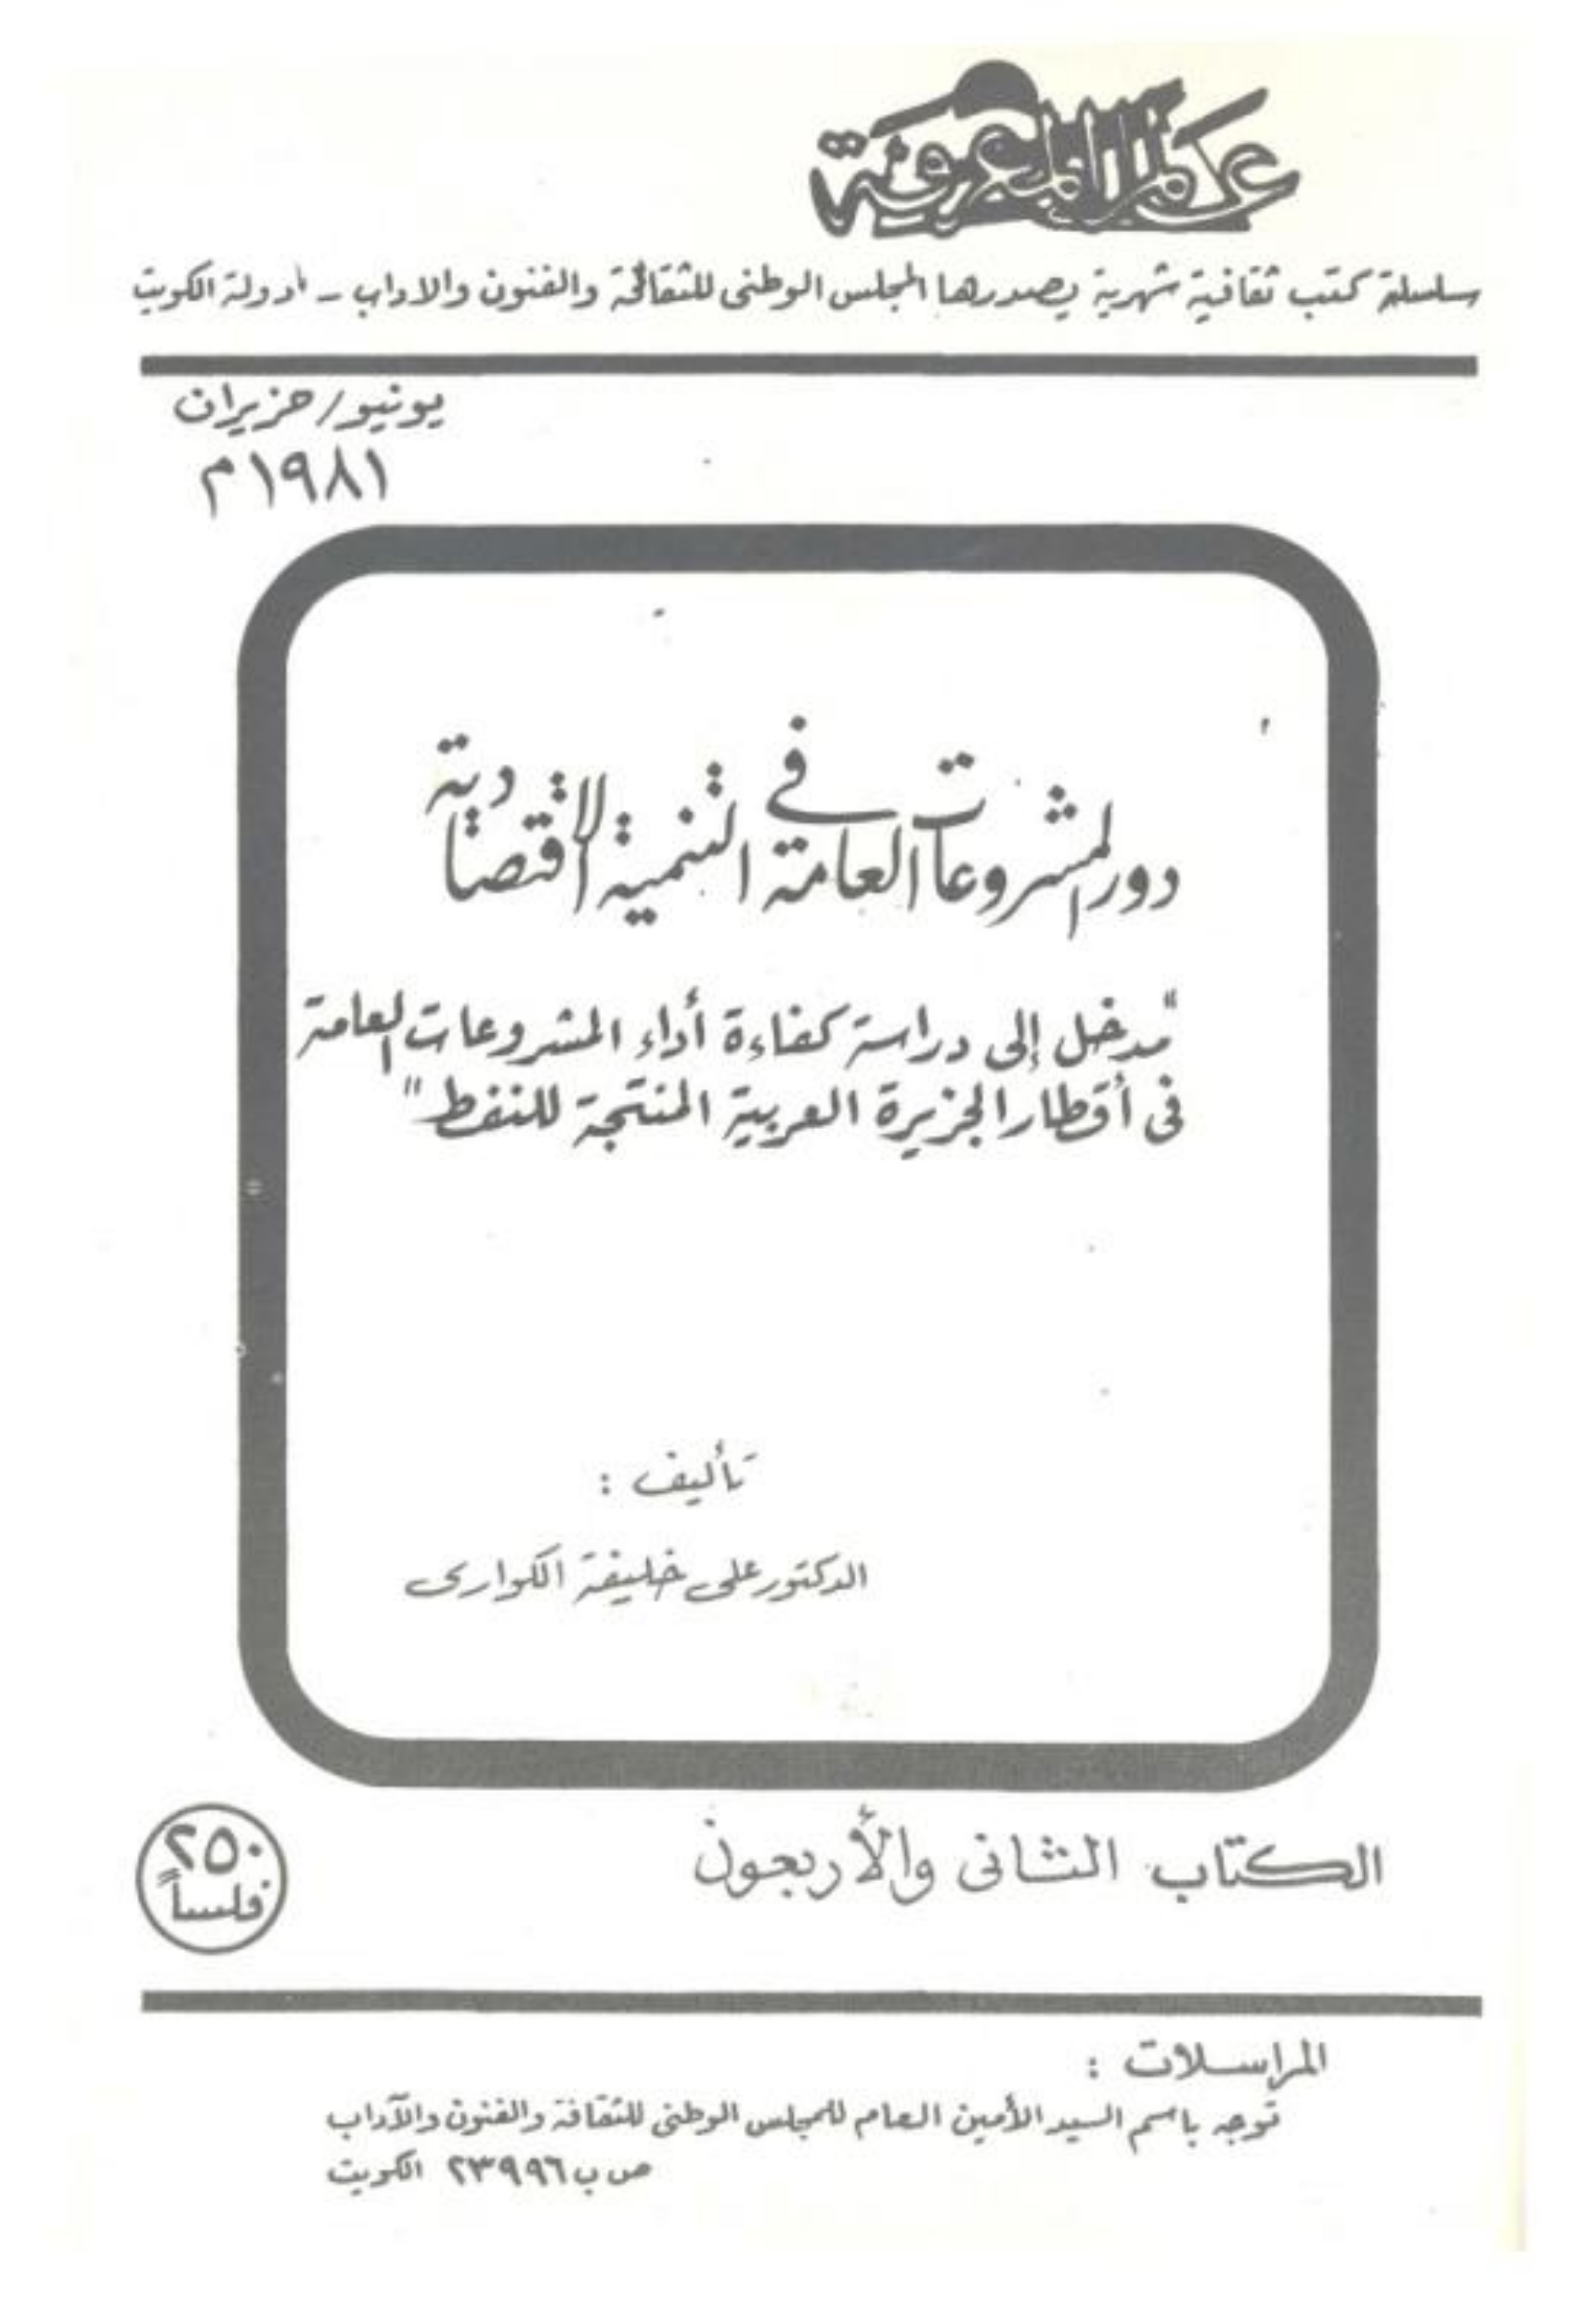 عالم المعرفة
سلسلة كتب ثقافية شهرية يصدرها المجلس الوطني للثقافة والفنون والاداب - دولة الكويت
يونيو/حزيران
١٩٨١م
دور المشروعات العامة في التنمية الاقتصادية
"مدخل إلى دراسة كفاءة أداء المشروعات العامة
في أقطار الجزيرة العربية المنتجة للنفط"
تأليف :
الدكتور على خليفة الكوارى
الكتاب الثانى والأربعون
٢٥٠
فلساً
المراسلات :
توجه باسم السيد الأمين العام للمجلس الوطنى للثقافة والفنون والآداب
ص ب ٢٣٩٩٦ الكويت